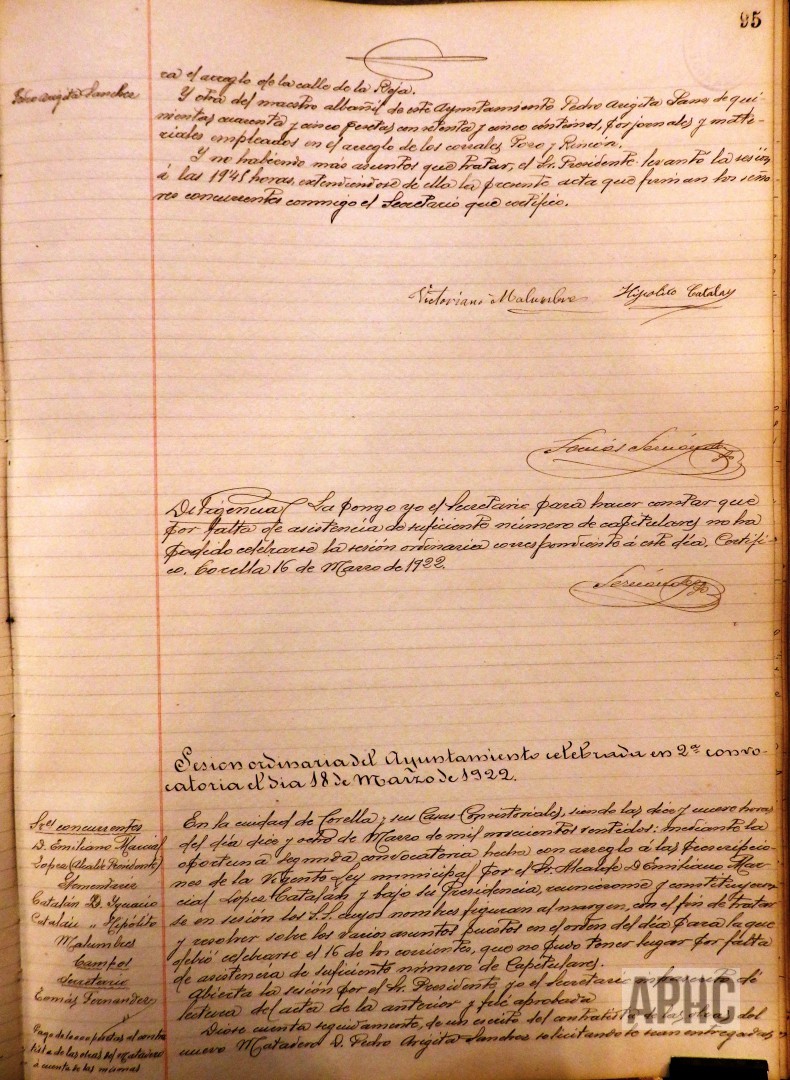 95
Pedro Arigita Sanchez
ra el arreglo de la calle de la Reja.
Y otra del maestro albañil de este Ayuntamiento Pedro Arigita Sanz de qui-
nientas cuarenta y cinco pesetas con setenta y cinco céntimos, por jornales y mate-
riales empleados en el arreglo de los corrales Pozo y Rincón.
Y no habiendo más asuntos que tratar, el Sr. Presidente levantó la sesión
á las 19'45 horas, extendiéndose de ella la presente acta que firman los seño-
res concurrentes conmigo el Secretario que certifico.
Victoriano Malumbres Hipolito Catalan
Tomás Fernández
Diligencia La pongo yo el Secretario para hacer constar que
por falta de asistencia de suficiente número de capitulares no ha
podido celebrarse la sesión ordinaria correspondiente á este día. Certifi-
co. Corella 16 de Marzo de 1922.
Fernández
Sesion ordinaria del Ayuntamiento celebrada en 2ª convo-
catoria el dia 18 de Marzo de 1922.
Sres concurrentes
D. Emiliano Marcial
Lopez (Alcalde Presidente)
Catalán D. Ignacio
Catalán " Hipólito
Malumbres
Campos
Secretario
Tomás Fernandez
Pago de 10000 pesetas al contra
tista de las obras del Matadero
á cuenta de las mismas
En la ciudad de Corella y sus Casas Consistoriales, siendo las diez y nueve horas
del día diez y ocho de Marzo de mil novecientos veintidos: mediante la
oportuna segunda convocatoria hecha con arreglo á las prescripcio-
nes de la Vigente Ley municipal por el Sr. Alcalde D. Emiliano Mar-
cial Lopez Catalán y bajo su Presidencia, reunieronse y constituyeron-
se en sesión los S.S. cuyos nombres figuran al margen, con el fin de tratar
y resolver sobre los varios asuntos puestos en el orden del día para la que
debió celebrarse el 16 de los corrientes, que no pudo tener lugar por falta
de asistencia de suficiente número de Capitulares.
Abierta la sesión por el Sr. Presidente, yo el Secretario infrascrito dí
lectura del acta de la anterior y fué aprobada
Diose cuenta seguidamente, de un escrito del contratista de las obras del
nuevo Matadero D. Pedro Arigita Sanchez solicitando le sean entregadas
APHC